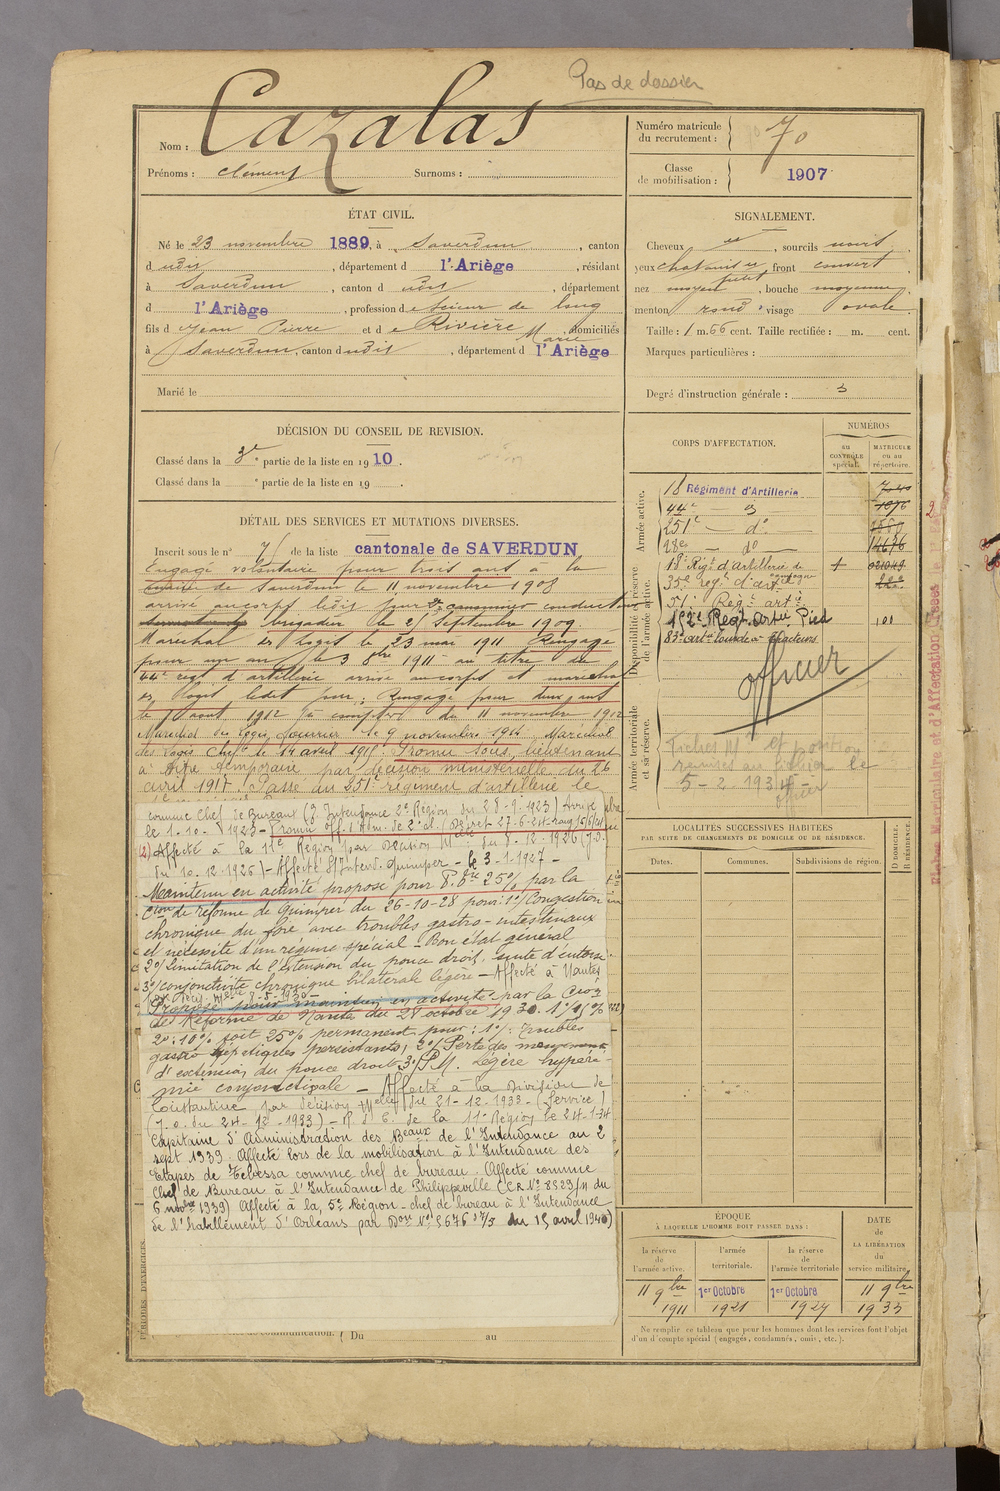 Pas de dossier
Nom : Cazalas
Prénoms : Clément Surnoms :
Numéro matricule
du recrutement : 70
Classe
de mobilisation : 1907
ÉTAT CIVIL.
Né le 23 novembre 1889, à Saverdun, canton
d udit, département d l'Ariège, résidant
à Saverdun, canton d udit, département
d l'Ariège, profession de scieur de long
fils d Jean Pierre et d e Rivière Marie, domiciliés
à Saverdun, canton d udit, département d l'Ariège
Marié le
SIGNALEMENT.
Cheveux et sourcils noirs
yeux chatains, front couvert
nez moyen, bouche moyenne
menton rond visage ovale
Taille : 1 m. 66 cent. Taille rectifiée : m. cent.
Marques particulières :
Degré d'instruction générale : 3
DÉCISION DU CONSEIL DE REVISION.
Classé dans la 3e partie de la liste en 1910.
Classé dans la e partie de la liste en 19 .
CORPS D'AFFECTATION.
NUMÉROS
au
CONTRÔLE
spécial.
MATRICULE
ou au
répertoire.
Armée active.
18 Régiment d'Artillerie
44e — d°
251e — d°
28e — d°
Disponibilité et réserve
de l'armée active.
18e Régt d'artillerie de campagne
35e Régt d'art
51e Régt artie
152e Régt Artie Pied 101
83e artie lourde à tracteurs
officier
Armée territoriale
et sa réserve.
Fiches Mle et position
remises au fichier le
5-2-1934
officier
DÉTAIL DES SERVICES ET MUTATIONS DIVERSES.
Inscrit sous le n° 71 de la liste cantonale de SAVERDUN
Engagé volontaire pour trois ans à la
mairie de Saverdun le 11 novembre 1908
arrivé au corps ledit jour 2e canonnier conducteur
brigadier le 25 septembre 1909.
Maréchal des logis le 23 mai 1911 Rengagé
pour un an le 3 8bre 1911 au titre du
44e régt d'artillerie arrivé au corps et maréchal
des logis ledit jour. Rengagé pour deux ans
le 1 août 1912 à compter du 11 novembre 1912
Maréchal des Logis fourrier le 9 novembre 1914. Maréchal
des Logis Chef le 14 avril 1915. Promu sous-lieutenant
à titre temporaire par décision ministérielle du 26
avril 1917. Passé au 251e régiment d'artillerie le
comme Chef de Bureau (J. Intendance 2e Région du 28-9-1923) Arrivé
le 1-10-1923 - Promu off. d'Adm. de 2e cl. (Décret 27-6-24
(2) Affecté à la 11e Région par Décision Mlle du 8-12-1926 (J.O.
du 10-12-1926) - Affecté S/Intend. Quimper - le 3-1-1927 -
Maintenu en activité proposé pour P. 25% par la
Cion de réforme de Quimper du 26-10-28 pour : 1°/ Congestion
chronique du foie avec troubles gastro-intestinaux
et nécessité d'un régime spécial - Bon état général
2°/ limitation de l'extension du pouce droit, suite d'entorse
3°/ conjonctivite chronique bilatérale légère - Affecté à Nantes
Proposé pour maintien en activité par la Cion
de Réforme de Nantes du 21 octobre 1930.
2° : 10% soit 25% permanent pour : 1°/ : Troubles
gastro-hépatiques persistants, 2°/ Perte des mouvements
d'extension du pouce droit, 3°/ P.M. légère hyperé-
mie conjonctivale - Affecté à la Division de
Constantine par décision Mlle du 21-12-1933 - (Service)
(J.O. du 24-12-1933) - R d C. de la 11e Région le 24-1-34
Capitaine d'Administration des Beaux de l'Intendance au 2
sept 1939. Affecté lors de la mobilisation à l'Intendance des
Etapes de Tébessa comme chef de bureau. Affecté comme
Chef de Bureau à l'Intendance de Philippeville (C.R. N° 8529/11 du
6 novbre 1939) Affecté à la 5e Région - chef de bureau à l'Intendance
de l'habillement d'Orléans par Don du 15 avril 1940)
PÉRIODES D'EXERCICES.
Du au
LOCALITÉS SUCCESSIVES HABITÉES
PAR SUITE DE CHANGEMENTS DE DOMICILE OU DE RÉSIDENCE.
Dates. Communes. Subdivisions de région.
D DOMICILE.
R RÉSIDENCE.
ÉPOQUE
À LAQUELLE L'HOMME DOIT PASSER DANS :
la réserve
de
l'armée active.
l'armée
territoriale.
la réserve
de
l'armée territoriale
DATE
de
LA LIBÉRATION
du
service militaire.
11 9bre 1911
1er Octobre 1921
1er Octobre 1927
11 9bre 1933
Ne remplir ce tableau que pour les hommes dont les services font l'objet
d'un décompte spécial (engagés, condamnés, omis, etc.).